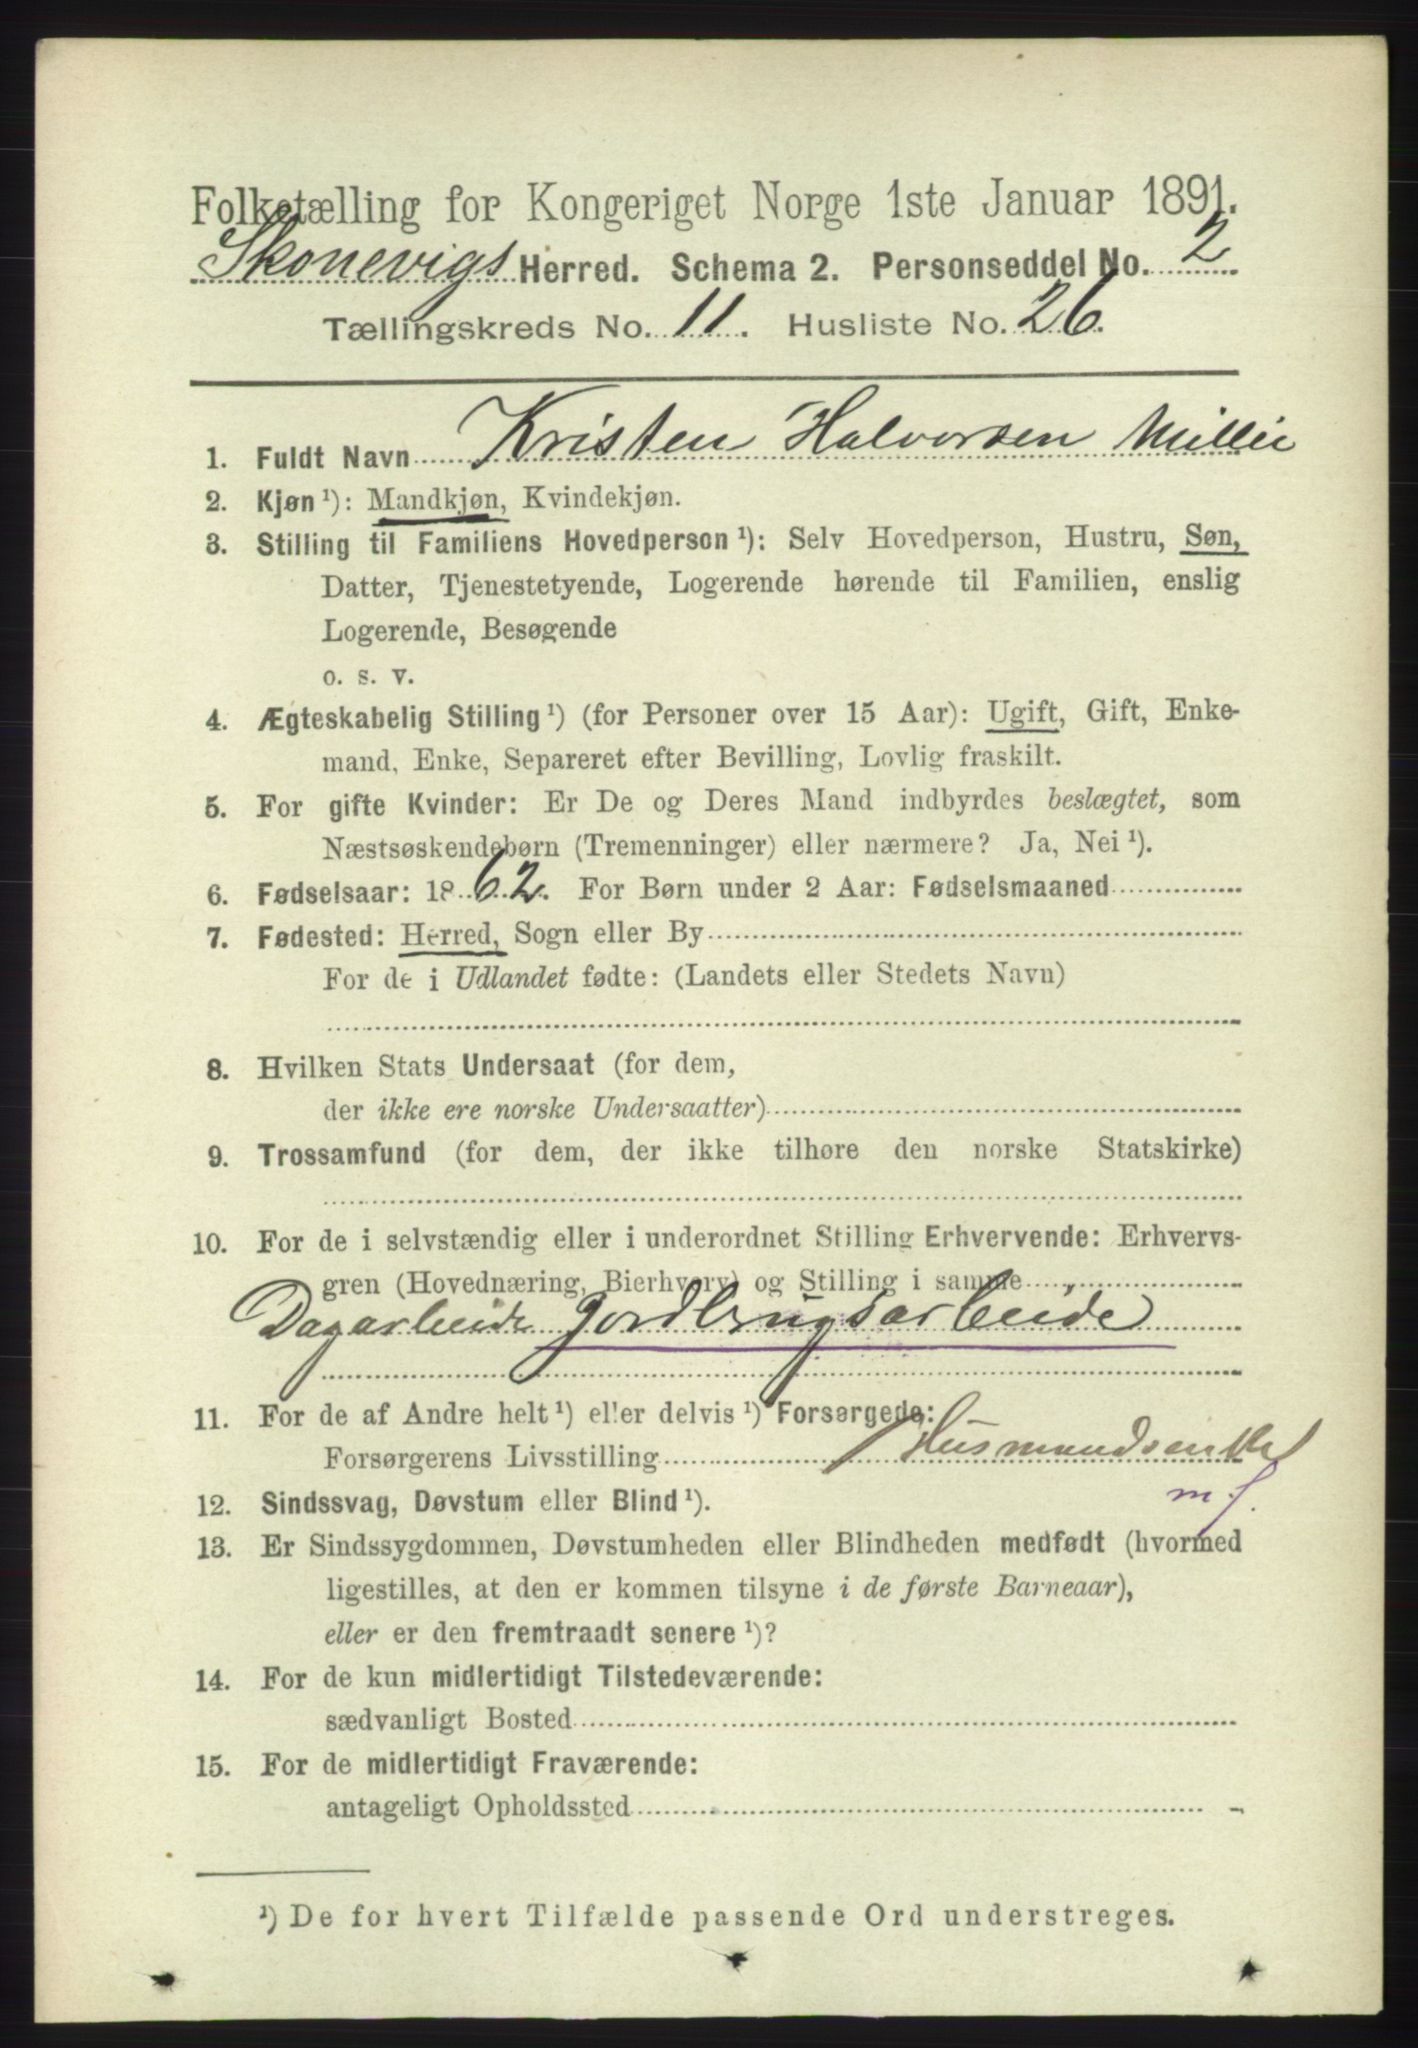 Folketælling for Kongeriget Norge 1ste Januar 1891.
Skonevigs Herred. Schema 2. Personseddel No. 2
Tællingskreds No. 11. Husliste No. 26.
1. Fuldt Navn Kristen Halvorsen Millie
2. Kjøn ¹): Mandkjøn, Kvindekjøn.
3. Stilling til Familiens Hovedperson ¹): Selv Hovedperson, Hustru, Søn,
Datter, Tjenestetyende, Logerende hørende til Familien, enslig
Logerende, Besøgende
o. s. v.
4. Ægteskabelig Stilling ¹) (for Personer over 15 Aar): Ugift, Gift, Enke-
mand, Enke, Separeret efter Bevilling, Lovlig fraskilt.
5. For gifte Kvinder: Er De og Deres Mand indbyrdes beslægtet, som
Næstsøskendebørn (Tremenninger) eller nærmere? Ja, Nei ¹).
6. Fødselsaar: 1862. For Børn under 2 Aar: Fødselsmaaned
7. Fødested: Herred, Sogn eller By
For de i Udlandet fødte: (Landets eller Stedets Navn)
8. Hvilken Stats Undersaat (for dem,
der ikke ere norske Undersaatter)
9. Trossamfund (for dem, der ikke tilhøre den norske Statskirke)
10. For de i selvstændig eller i underordnet Stilling Erhvervende: Erhvervs-
gren (Hovednæring, Bierhverv) og Stilling i samme
Dagarbeide Jordbrugsarbeide
11. For de af Andre helt ¹) eller delvis ¹) Forsørgede:
Forsørgerens Livsstilling Husmandsenke
m f.
12. Sindssvag, Døvstum eller Blind ¹).
13. Er Sindssygdommen, Døvstumheden eller Blindheden medfødt (hvormed
ligestilles, at den er kommen tilsyne i de første Barneaar),
eller er den fremtraadt senere ¹)?
14. For de kun midlertidigt Tilstedeværende:
sædvanligt Bosted
15. For de midlertidigt Fraværende:
antageligt Opholdssted
¹) De for hvert Tilfælde passende Ord understreges.